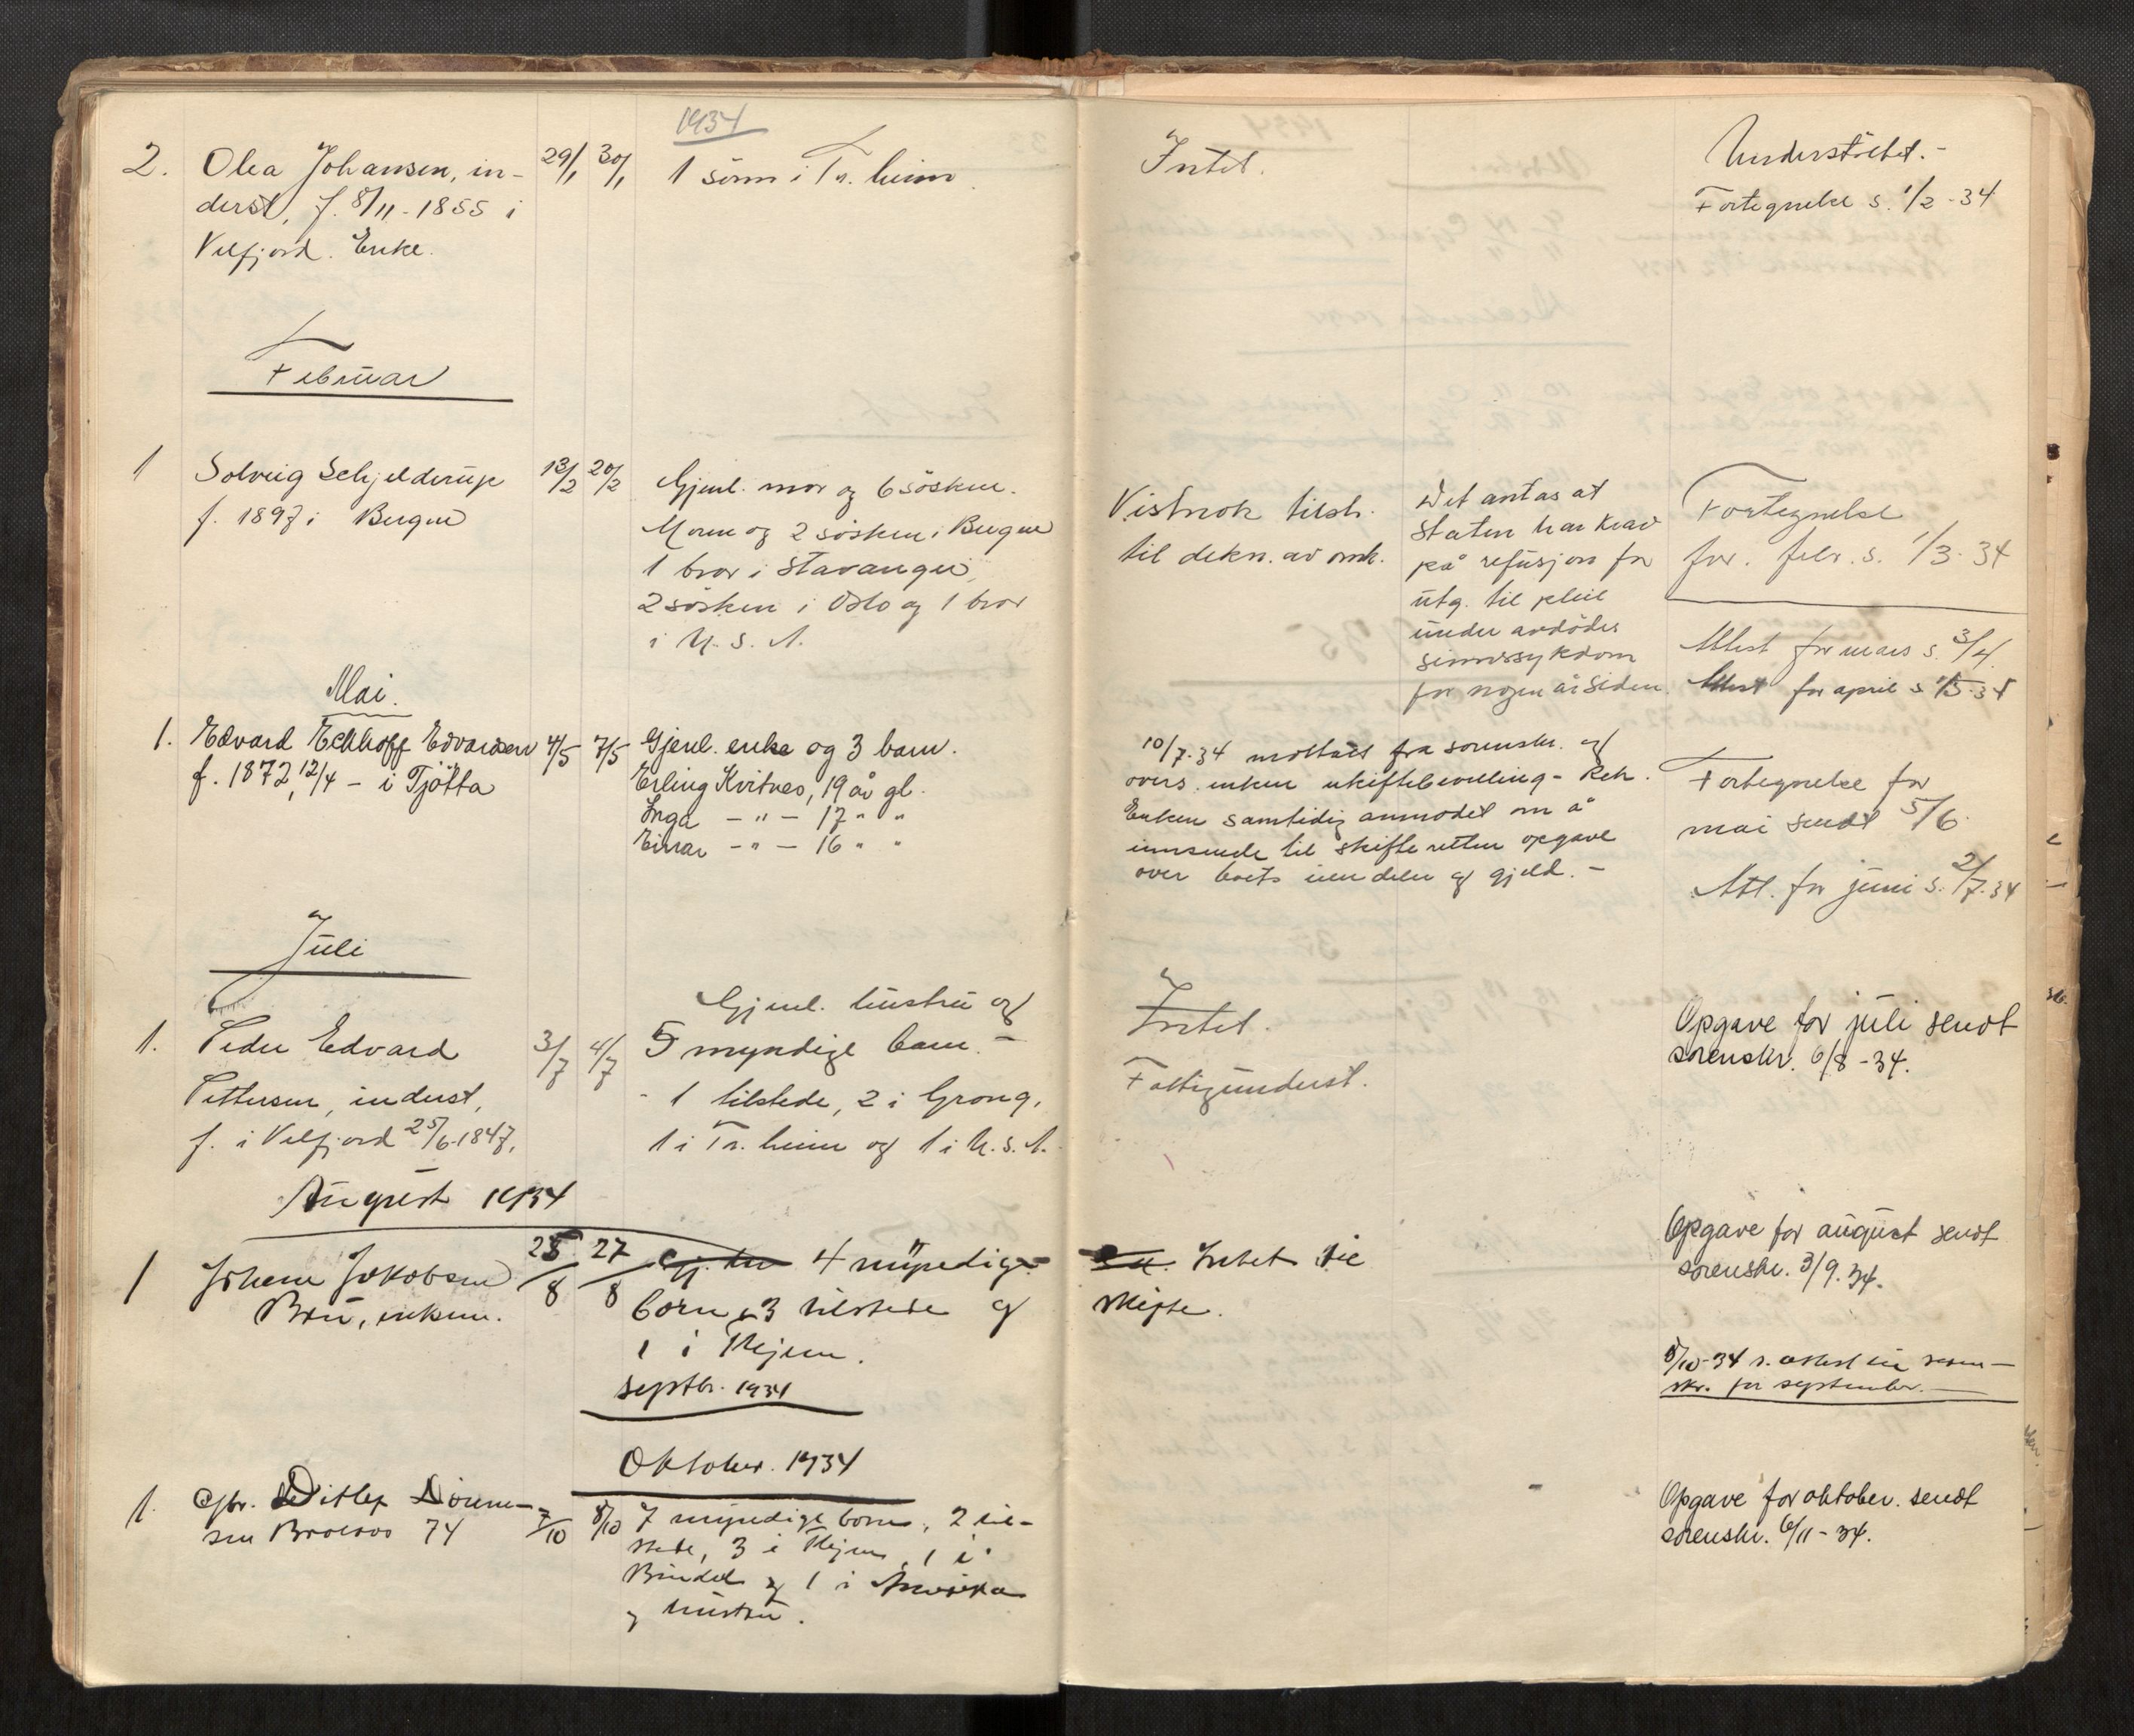 1934
2. Olea Johansen, in- 29/1 30/1 1 sönn i Tr.heim. Intet. Understöttet.-
derst, f. 8/11-1855 i Fortegnelse s. 1/2-34
Velfjord. Enke.
Februar
1 Solveig Schjelderup 13/2 20/2 Gjenl. mor og 6 søsken.
f. 1897 i Bergen
Moren og 2 søsken i Bergen
1 bror i Stavanger,
2 søsken i Oslo og 1 bror
i U.S.A.
Vistnok tilstr.
til dekn. av omk.
Det antas at
staten har krav
på refusjon for
utg. til pleie
under avdödes
sinnssykdom
for nogen år siden.
Fortegnelse
for. febr. s. 1/3-34
Attest for mars s. 3/4.
Attest for april s. 1/5-34
Mai.
1. Edvard Eckhoff Edvardsen 4/5 7/5 Gjenl. enke og 3 barn.
f. 1872, 12/4 - i Tjötta
Erling Kvitnes, 19 år gl.
Inga -"- 17 " "
Einar -"- 16 " "
10/7-34 mottatt fra sorenskr. og
overs. enken uskiftebevilling - Rek.
Enken samtidig anmodet om å
innsende til skifteretten opgave
over boets eiendeler og gjeld.-
Fortegnelse for
mai sendt 5/6.
Att. for juni s. 2/7-34
Juli
1. Peder Edvard 3/7 4/7
Pettersen, inderst,
f. i Velfjord 25/6-1847.
Gjenl. hustru og
5 myndige barn.-
- 1 tilstede, 2 i Grong,
1 i Tr.heim og 1 i U.S.A.
Intet.
Fattigunderst.
Opgave for juli sendt
sorenskr. 6/8-34.
August 1934
1 Johan Jakobsen 25/8 27/8 4 myndige
Bru, enkem. born, 3 tilstede og
1 i Skjern.
Intet til
skifte.
Opgave for august sendt
sorenskr. 3/9.34.
septbr. 1934
5/10-34 s. attest til soren-
skr. for september.-
Oktober. 1934
1. Gbr. Ditlef 7/10 8/10 7 myndige born, 2 til-
sen 74 stede, 3 i Skjern, 1 i
Bindal og 1 i Amerika
og hustru.
Opgave for oktober. sendt
sorenskr. 6/11-34.